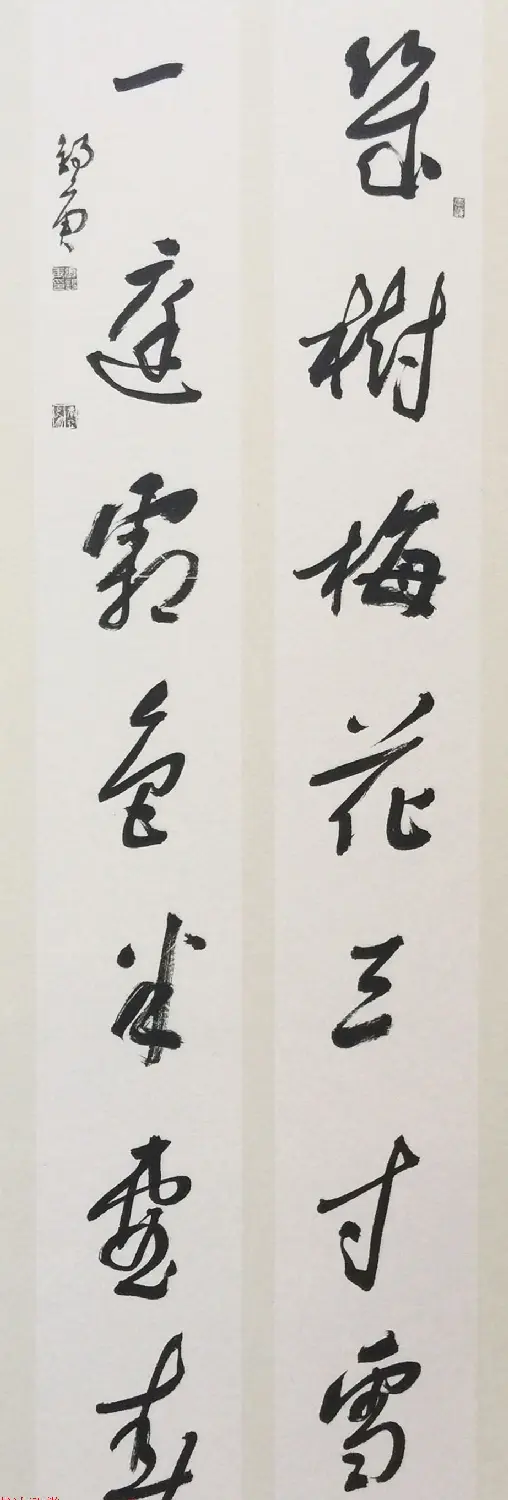 幾樹梅花三寸雪
一庭霜色半壺春